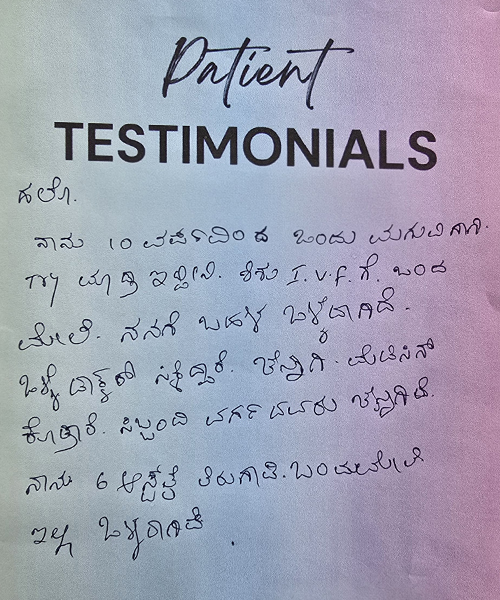 Patient
TESTIMONIALS
ಹಲೋ.
ನಾನು 10 ವರ್ಷದಿಂದ ಒಂದು ಮಗುವಿಗಾಗಿ.
Try ಮಾಡ್ತಾ ಇದ್ದೀನಿ. ಶಿಶು I.V.F. ಗೆ. ಬಂದ
ಮೇಲೆ. ನನಗೆ ಬಹಳ ಒಳ್ಳೆದಾಗಿದೆ.
ಒಳ್ಳೆ ಡಾಕ್ಟರ್ ಸಿಕ್ಕಿದ್ದಾರೆ. ಚೆನ್ನಾಗಿ. ಮೆಡಿಸಿನ್
ಕೊಡ್ತಾರೆ. ಸಿಬ್ಬಂದಿ ವರ್ಗದವರು ಚೆನ್ನಾಗಿದೆ.
ನಾನು 6 ಆಸ್ಪತ್ರೆ ತಿರುಗಾಡಿ. ಬಂದಮೇಲೆ
ಇಲ್ಲಿ ಒಳ್ಳೆದಾಗಿದೆ.